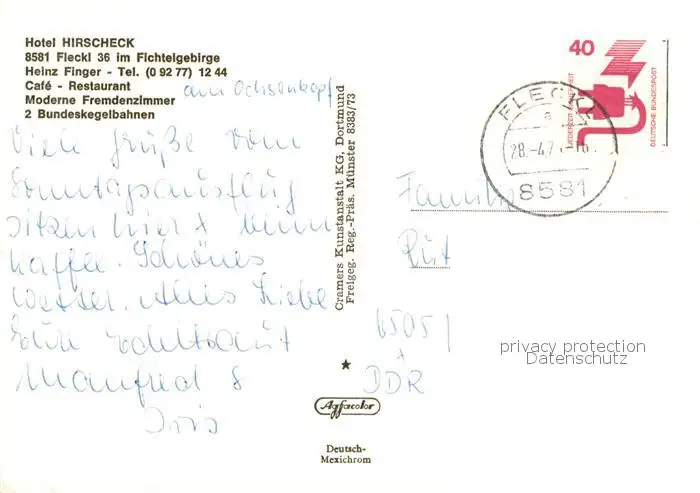 Hotel HIRSCHECK
8581 Fleckl 36 im Fichtelgebirge
Heinz Finger - Tel. (0 92 77) 12 44
Café - Restaurant
am Ochsenkopf
Moderne Fremdenzimmer
2 Bundeskegelbahnen
Viele Grüße vom
Sonntagsausflug
sitzen hier + beim
Kaffee. Schönes
Wetter. Alles Liebe
Eure
Manfred &
Iris
Cramers Kunstanstalt KG, Dortmund
Freigeg. Reg.-Präs. Münster 8383/73
Agfacolor
Deutsch-
Mexichrom
40
JEDERZEIT SICHERHEIT
DEUTSCHE BUNDESPOST
FLECKL
a
28.-4.7
8581
Familie
Rut
65051
DDR
privacy protection
Datenschutz